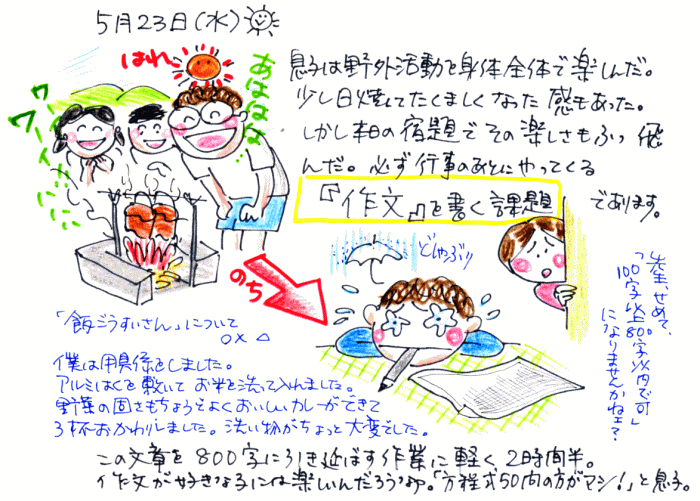 5月23日(水)
はれ
あはははは
ワーイワーイ
息子は野外活動を身体全体で楽しんだ。
少し日焼してたくましくなった感もあった。
しかし本日の宿題でその楽しさもぶっ飛
んだ。必ず行事のあとにやってくる
『作文』を書く課題であります。
のち
どしゃぶり
先生、せめて、
「100字以上800字以内で可」
になりませんかねェ?
「飯ごうすいさん」について
○×△
僕は用具係をしました。
アルミはくを敷いてお米を洗って入れました。
野菜の固さもちょうどよくおいしいカレーができて
3杯おかわりしました。洗い物がちょっと大変でした。
この文章を800字に引き延ばす作業に軽く、2時間半。
作文が好きな子には楽しいんだろうなァ。「方程式50問の方がマシ!」と息子。